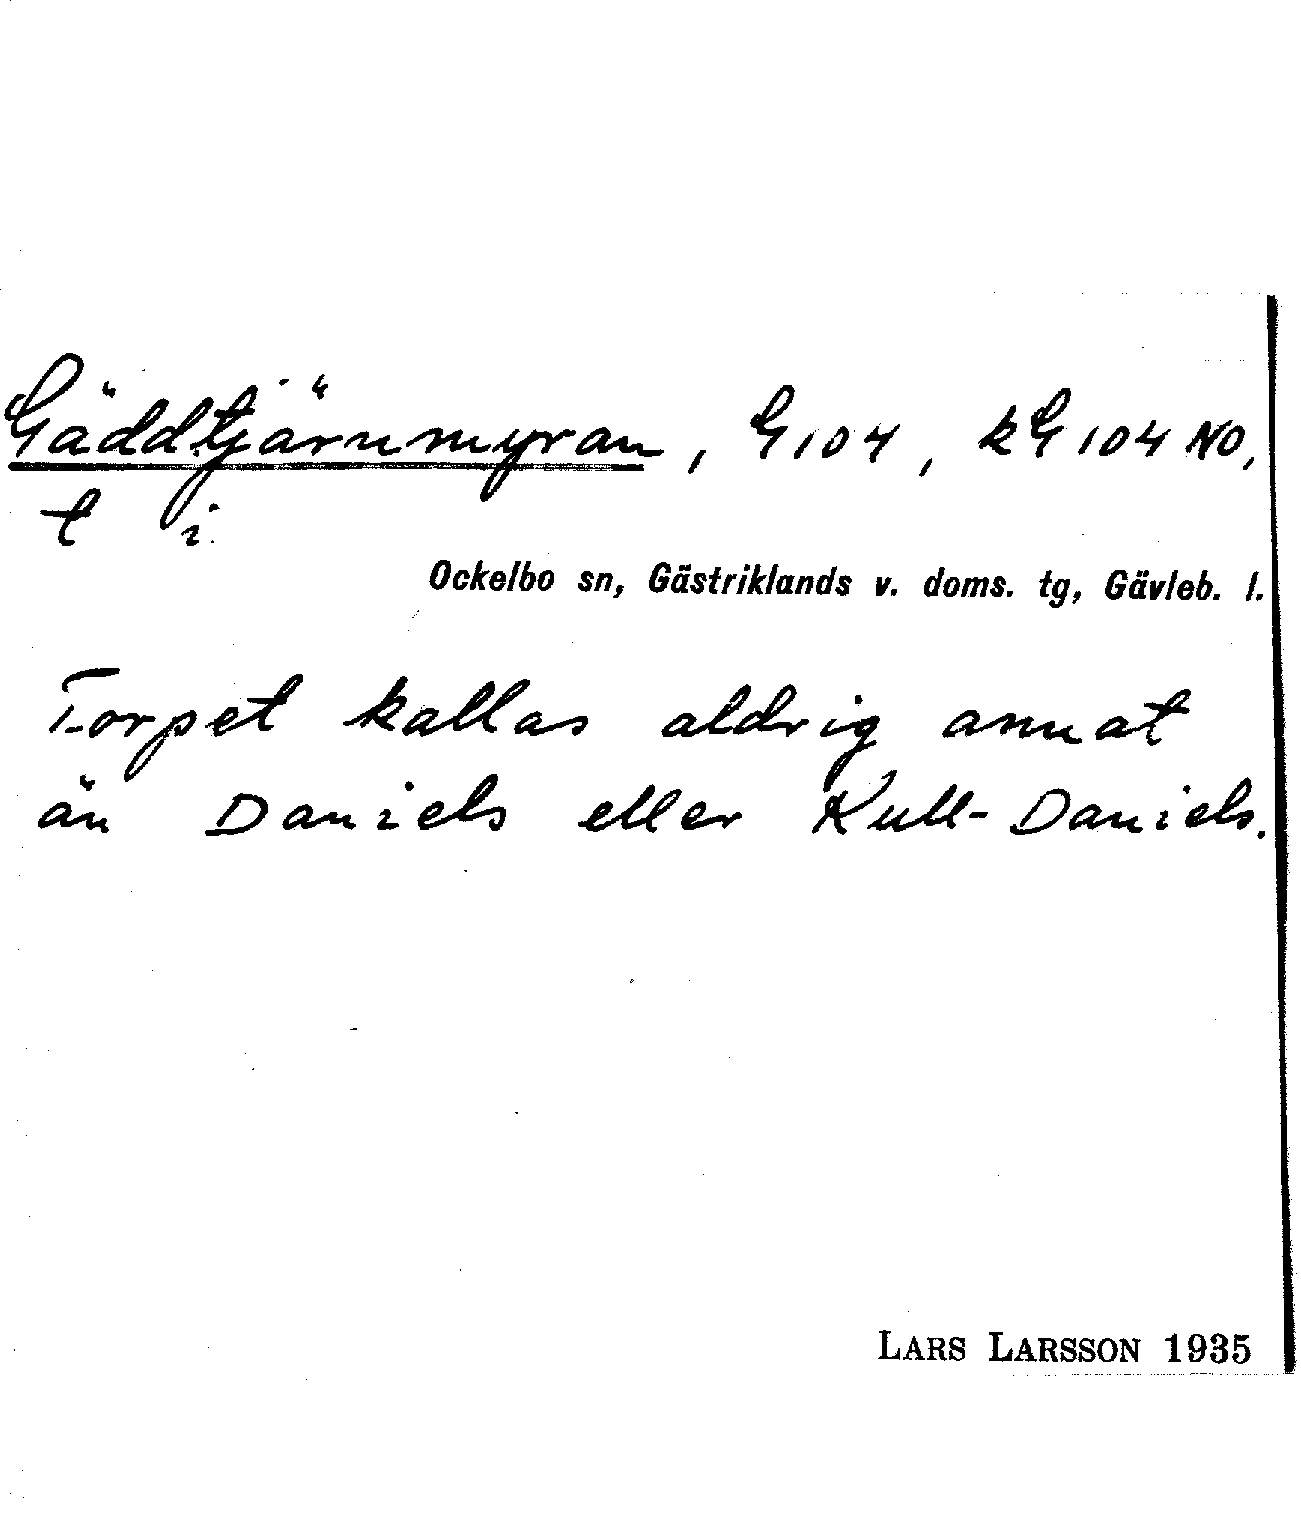 Gäddtjärnmyran, G 104, kG 104 NO,
t i
Ockelbo sn, Gästriklands v. doms. tg, Gävleb. l.
Torpet kallas aldrig annat
än Daniels eller Kull-Daniels.
LARS LARSSON 1935